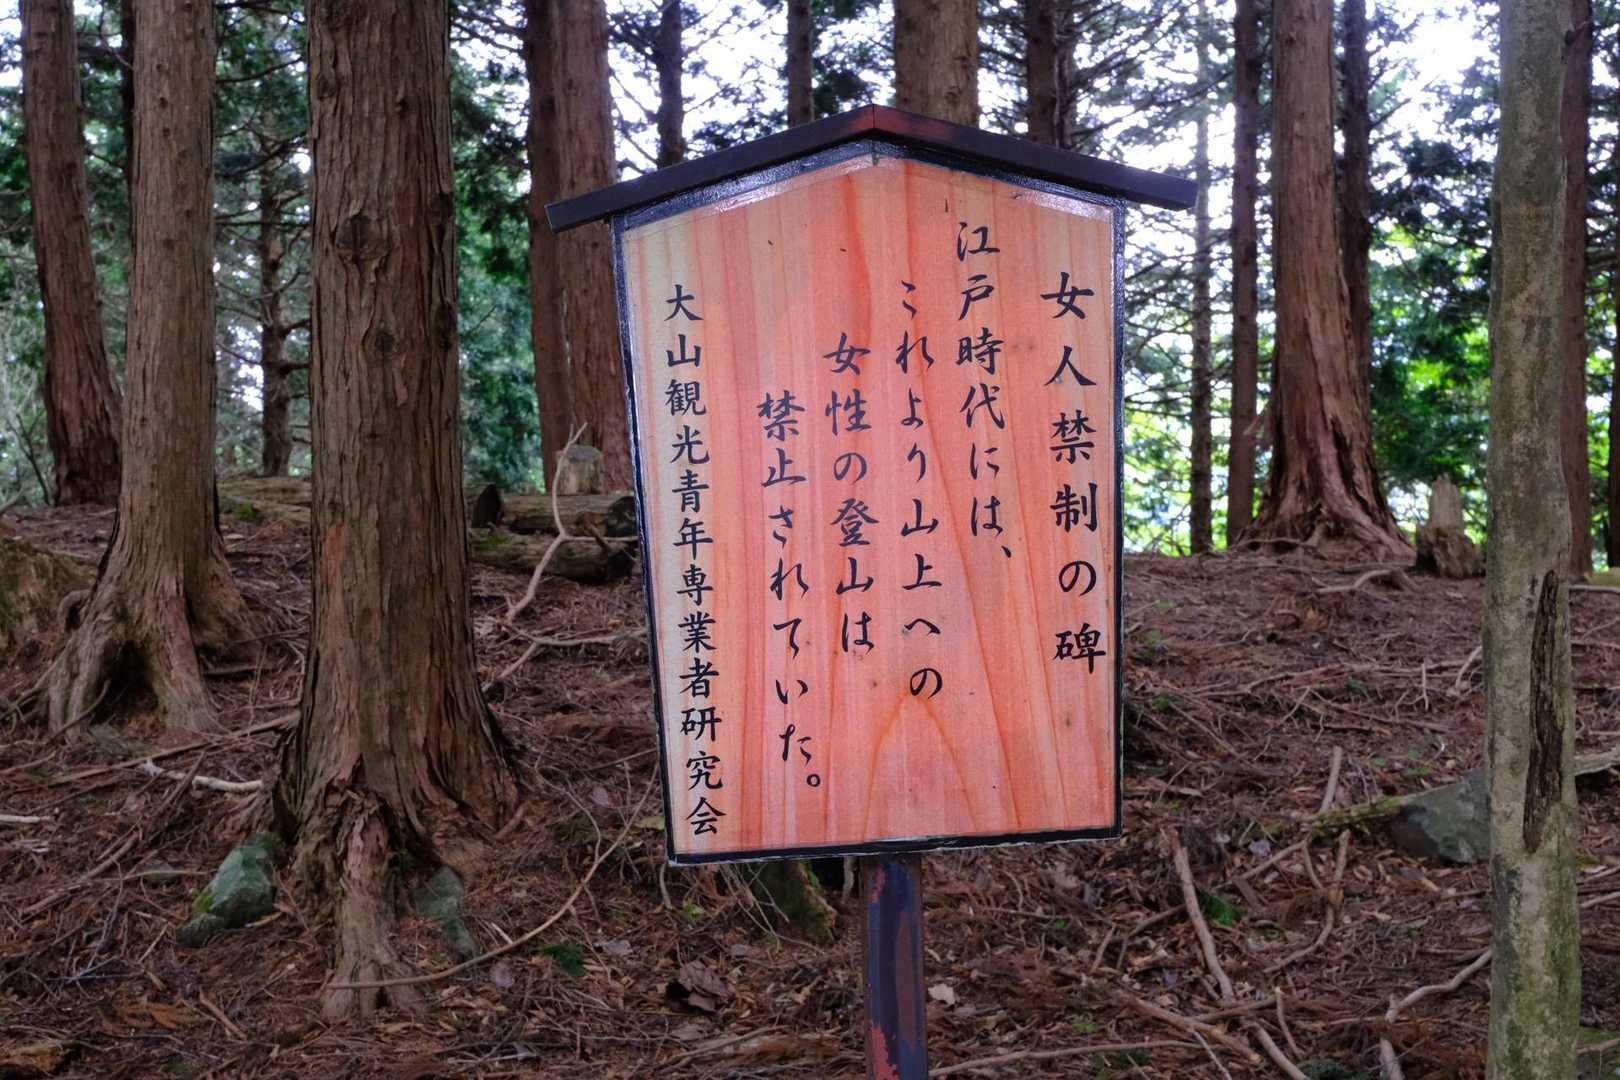 女人禁制の碑
江戸時代には、
これより山上への
女性の登山は
禁止されていた。
大山観光青年専業者研究会